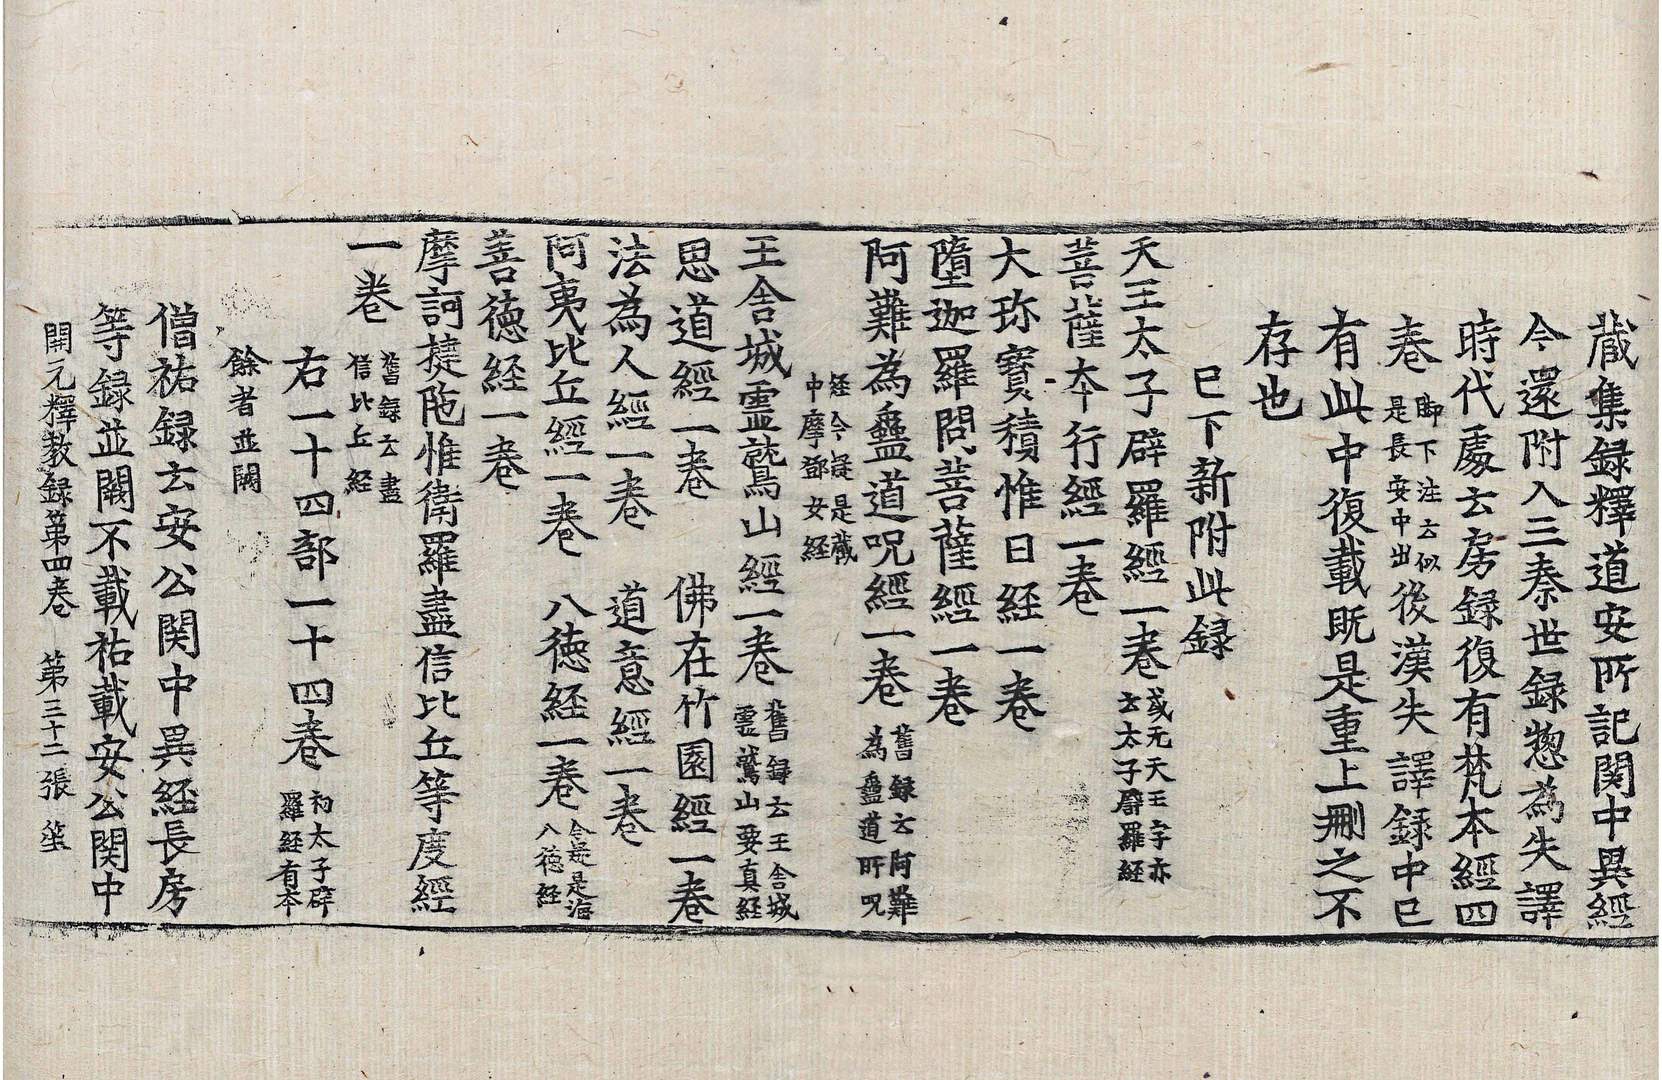 藏集録釋道安所記関中異經
今還附入三秦世録惣為失譯
時代處云房録復有梵本經四
卷脚下注云似是長安中出後漢失譯録中已
有此中復載既是重上刪之不
存也
已下新附此録
天王太子辟羅經一卷或无天王字亦云太子辟羅經
菩薩本行經一卷
大珎寳積惟日経一卷
墮迦羅問菩薩經一卷
阿難為蠱道呪經一卷舊録云阿難為蠱道所呪
経今疑是藏中摩鄧女経
王舎城靈鷲山經一卷舊録云王舎城靈鷲山要真経
思道經一卷 佛在竹園經一卷
法為人經一卷 道意經一卷
阿夷比丘經一卷 八德経一卷今疑是海八德経
善德経一卷
摩訶揵陁惟衛羅盡信比丘等度經
一卷舊録云盡信比丘経
右一十四部一十四卷初太子辟羅経有本
餘者並闕
僧祐録云安公関中異経長房
等録並闕不載祐載安公関中
開元釋教録第四卷 第三十二張 㘴